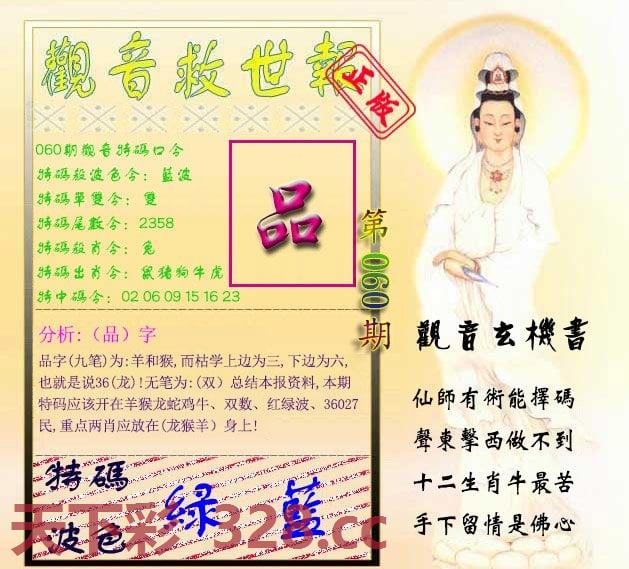 觀音救世報
正版
060期觀音特碼口令
特碼殺波色令：藍波
特碼單雙令：雙
特碼尾數令：2358
特碼殺肖令：兔
特碼出肖令：鼠猪狗牛虎
特中碼令：02 06 09 15 16 23
品
第060期
分析:（品）字
品字(九笔)为:羊和猴,而枯学上边为三,下边为六,
也就是说36(龙)!无笔为:(双）总结本报资料,本期
特码应该开在羊猴龙蛇鸡牛、双数、红绿波、36027
民,重点两肖应放在(龙猴羊）身上!
特碼
波色
綠 藍
天下彩 328.cc
觀音玄機書
仙師有術能擇碼
聲東擊西做不到
十二生肖牛最苦
手下留情是佛心